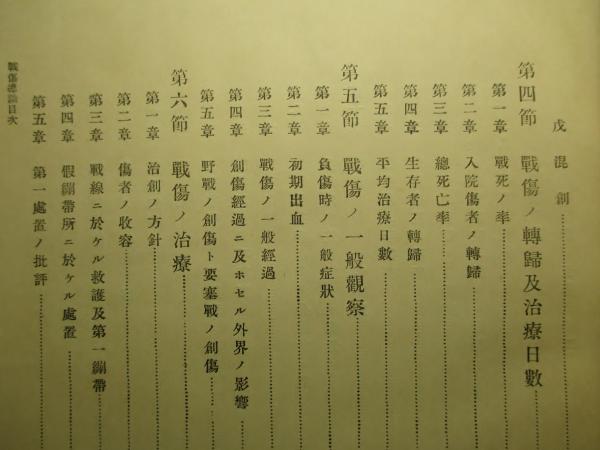 戊 混創
第四節 戰傷ノ轉歸及治療日數
第一章 戰死ノ率
第二章 入院傷者ノ轉歸
第三章 總死亡率
第四章 生存者ノ轉歸
第五章 平均治療日數
第五節 戰傷ノ一般觀察
第一章 負傷時ノ一般症狀
第二章 初期出血
第三章 戰傷ノ一般經過
第四章 創傷經過ニ及ホセル外界ノ影響
第五章 野戰ノ創傷ト要塞戰ノ創傷
第六節 戰傷ノ治療
第一章 治創ノ方針
第二章 傷者ノ收容
第三章 戰線ニ於ケル救護及第一繃帶
第四章 假繃帶所ニ於ケル處置
第五章 第一處置ノ批評
戰傷總論目次